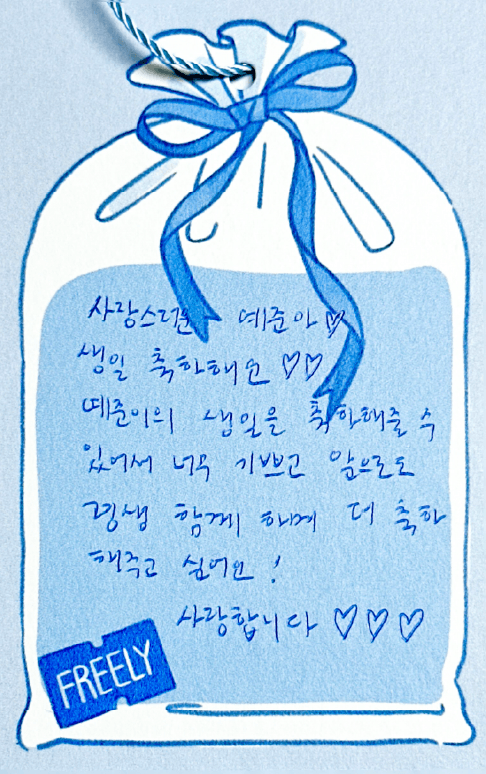 사랑스러운 예준아♡
생일 축하해요 ♡♡
예준이의 생일을 축하해줄 수
있어서 너무 기쁘고 앞으로도
평생 함께 하며 더 축하
해주고 싶어요!
사랑합니다 ♡♡♡
FREELY